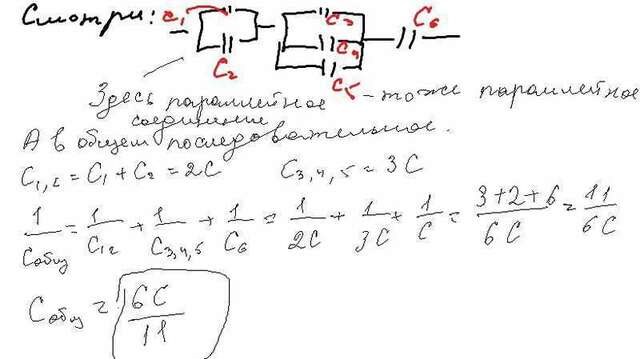 Смотри: C₁ C₃ C₆
C₄
C₂ C₅
Здесь параллейное - тоже параллейное
соединение
А в общем последовательное.
C₁,₂ = C₁ + C₂ = 2C C₃,₄,₅ = 3C
1/Cобщ = 1/C₁₂ + 1/C₃,₄,₅ + 1/C₆ = 1/2C + 1/3C + 1/C = 3+2+6/6C = 11/6C
Cобщ = 6C/11